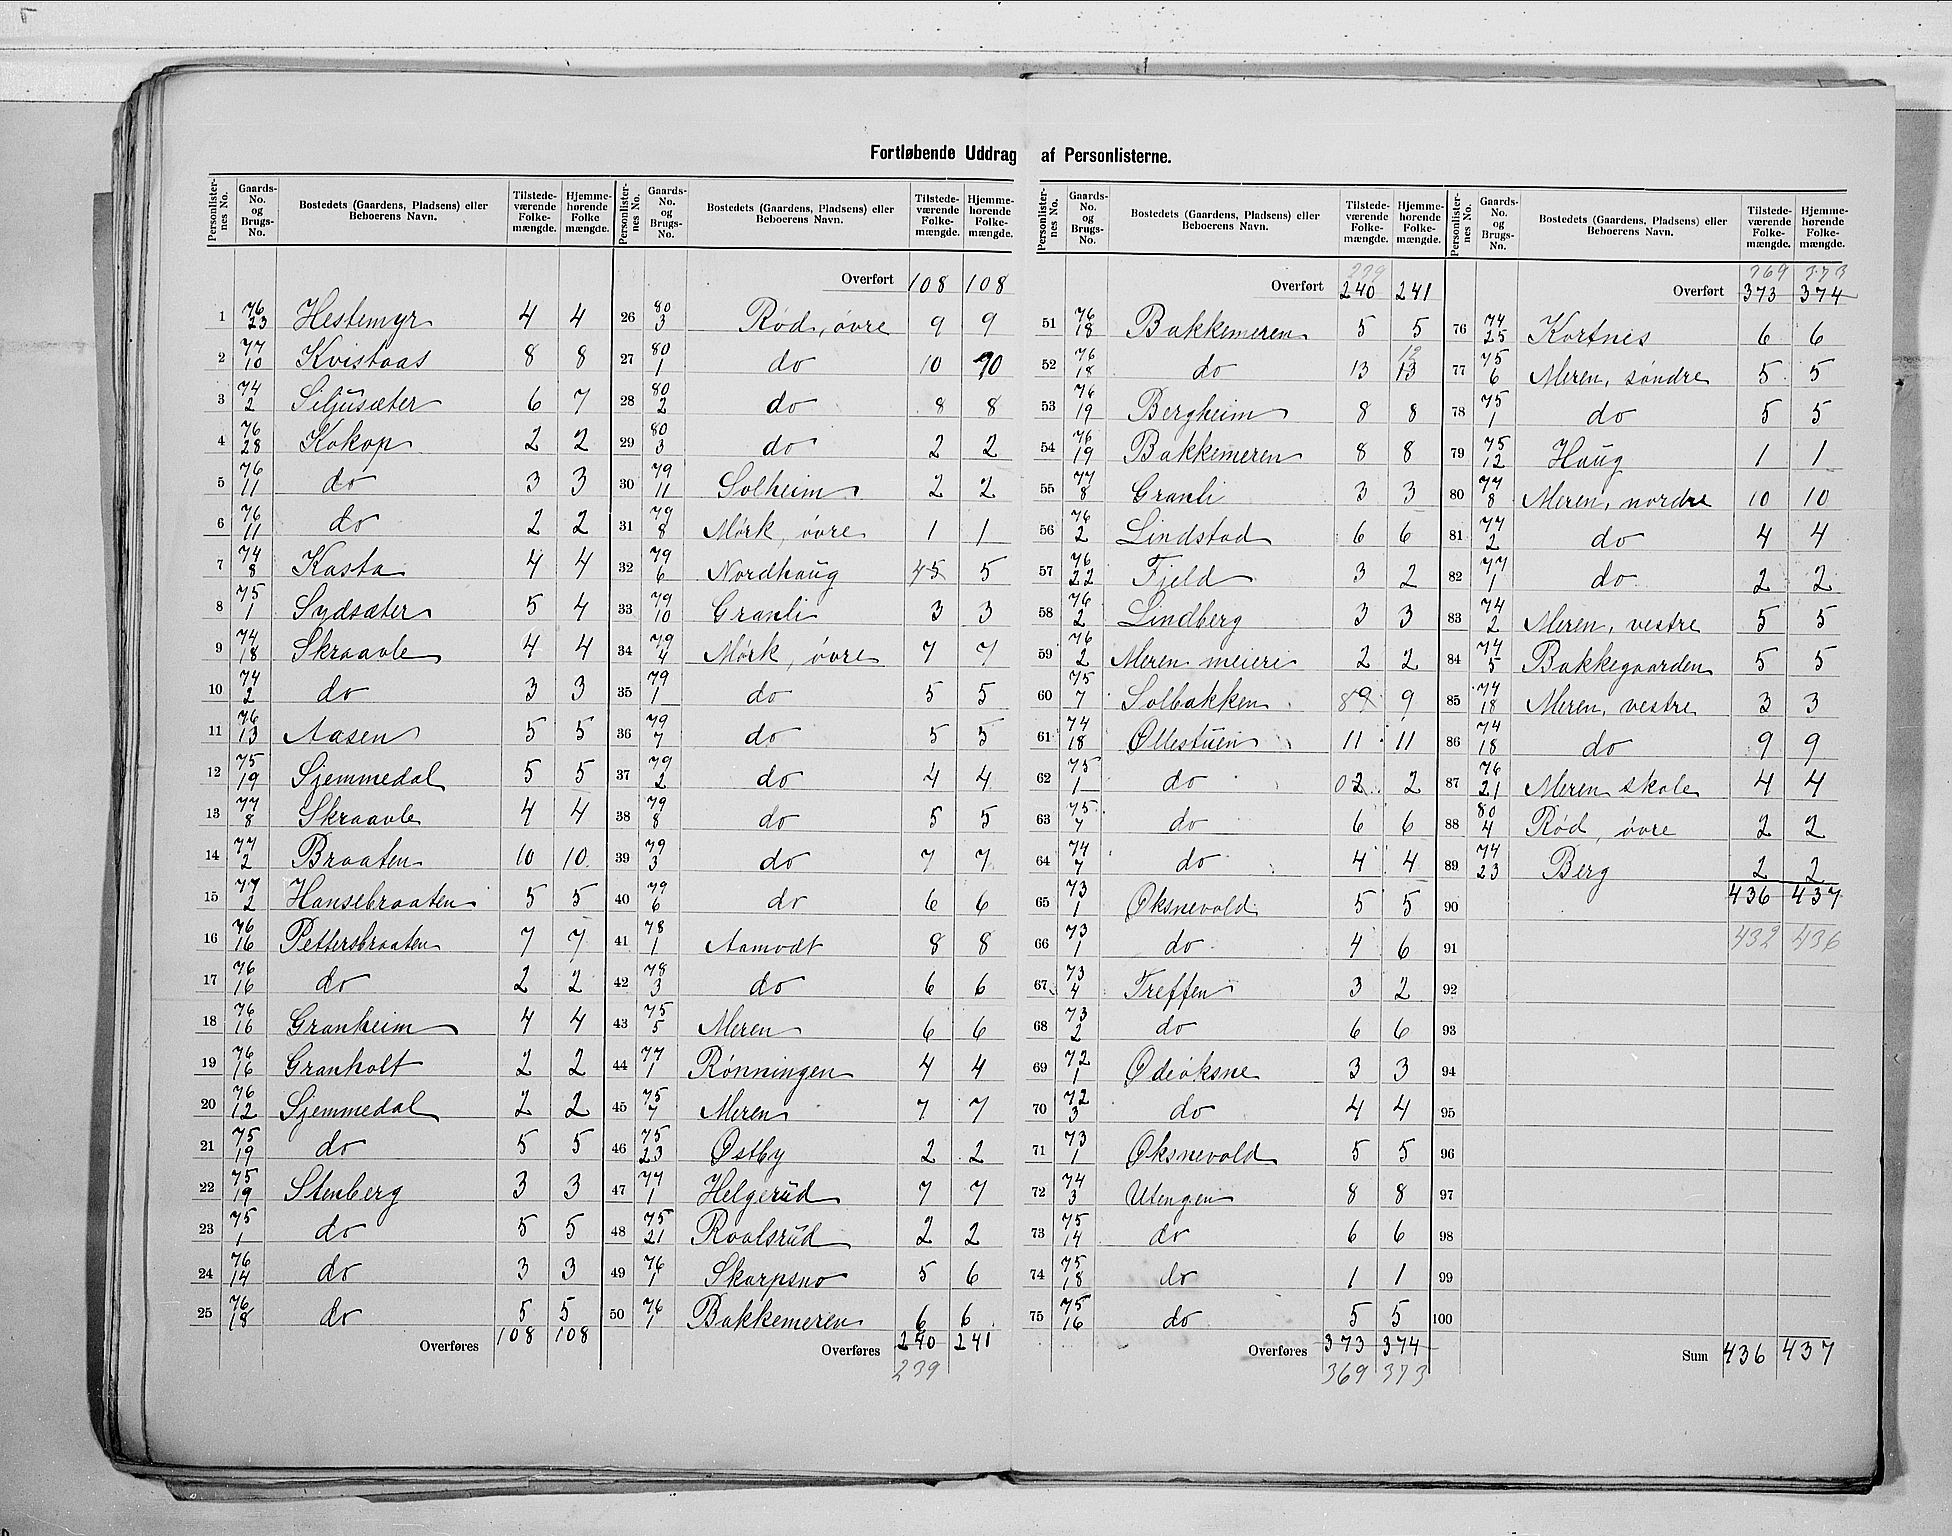 Fortløbende Uddrag af Personlisterne.
Personlisternes No. | Gaards-No. og Brugs-No. | Bostedets (Gaardens, Pladsens) eller Beboerens Navn. | Tilstedeværende Folkemængde. | Hjemmehørende Folkemængde.
1 76/23 Hestemyr 4 4
2 77/10 Kvistaas 8 8
3 74/2 Siljusæter 6 7
4 76/28 Kokop 2 2
5 76/11 do 3 3
6 76/11 do 2 2
7 74/8 Kasta 4 4
8 75/1 Sydsæter 5 4
9 74/18 Skraavle 4 4
10 74/2 do 3 3
11 76/13 Aasen 5 5
12 75/19 Sjemmedal 5 5
13 77/8 Skraavle 4 4
14 77/2 Braaten 10 10
15 77/2 Hansebraaten 5 5
16 76/16 Pettersbraaten 7 7
17 76/16 do 2 2
18 76/16 Granheim 4 4
19 76/16 Granholt 2 2
20 76/12 Sjemmedal 2 2
21 75/19 do 5 5
22 75/19 Stenberg 3 3
23 75/1 do 5 5
24 76/14 do 3 3
25 76/18 do 5 5
Overføres 108 108
Personlisternes No. | Gaards-No. og Brugs-No. | Bostedets (Gaardens, Pladsens) eller Beboerens Navn. | Tilstedeværende Folkemængde. | Hjemmehørende Folkemængde.
Overført 108 108
26 80/3 Rød, øvre 9 9
27 80/1 do 10 10
28 80/2 do 8 8
29 80/3 do 2 2
30 79/11 Solheim 2 2
31 79/8 Mørk, øvre 1 1
32 79/6 Nordhaug 45 5
33 79/10 Granli 3 3
34 79/4 Mørk, øvre 7 7
35 79/1 do 5 5
36 79/7 do 5 5
37 79/2 do 4 4
38 79/8 do 5 5
39 79/3 do 7 7
40 79/6 do 6 6
41 78/1 Aamodt 8 8
42 78/3 do 6 6
43 75/5 Meren 6 6
44 77/1 Rønningen 4 4
45 75/7 Meren 7 7
46 75/23 Østby 2 2
47 77/1 Helgerud 7 7
48 75/21 Roalsrud 2 2
49 76/1 Skarpsno 5 6
50 76/1 Bakkemeren 6 6
Overføres 240 241
239
Personlisternes No. | Gaards-No. og Brugs-No. | Bostedets (Gaardens, Pladsens) eller Beboerens Navn. | Tilstedeværende Folkemængde. | Hjemmehørende Folkemængde.
239
Overført 240 241
51 76/18 Bakkemeren 5 5
12
52 76/18 do 13 13
53 76/19 Bergheim 8 8
54 76/19 Bakkemeren 8 8
55 77/8 Granli 3 3
56 76/2 Lindstad 6 6
57 76/22 Fjeld 3 2
58 76/2 Lindberg 3 3
59 76/2 Meren meieri 2 2
60 75/7 Solbakken 89 9
61 74/18 Øllestuen 11 11
62 75/1 do 02 2
63 75/7 do 6 6
64 74/7 do 4 4
65 73/1 Øksnevold 5 5
66 73/1 do 4 6
67 73/4 Treffen 3 2
68 73/2 do 6 6
69 72/1 Ødeøksne 3 3
70 72/3 do 4 4
71 73/1 Øksnevold 5 5
72 74/3 Utengen 8 8
73 75/14 do 6 6
74 75/18 do 1 1
75 75/16 do 5 5
Overføres 373 374
369 373
Personlisternes No. | Gaards-No. og Brugs-No. | Bostedets (Gaardens, Pladsens) eller Beboerens Navn. | Tilstedeværende Folkemængde. | Hjemmehørende Folkemængde.
369 373
Overført 373 374
76 74/25 Kortnes 6 6
77 75/6 Meren, søndre 5 5
78 75/1 do 5 5
79 75/12 Haug 1 1
80 77/8 Meren, nordre 10 10
81 77/2 do 4 4
82 77/1 do 2 2
83 74/2 Meren, vestre 5 5
84 74/5 Bakkegaarden 5 5
85 74/18 Meren, vestre 3 3
86 74/18 do 9 9
87 76/21 Meren skole 4 4
88 80/4 Rød, øvre 2 2
89 74/23 Berg 2 2
90 436 437
91 432 436
92
93
94
95
96
97
98
99
100
Sum 436 437